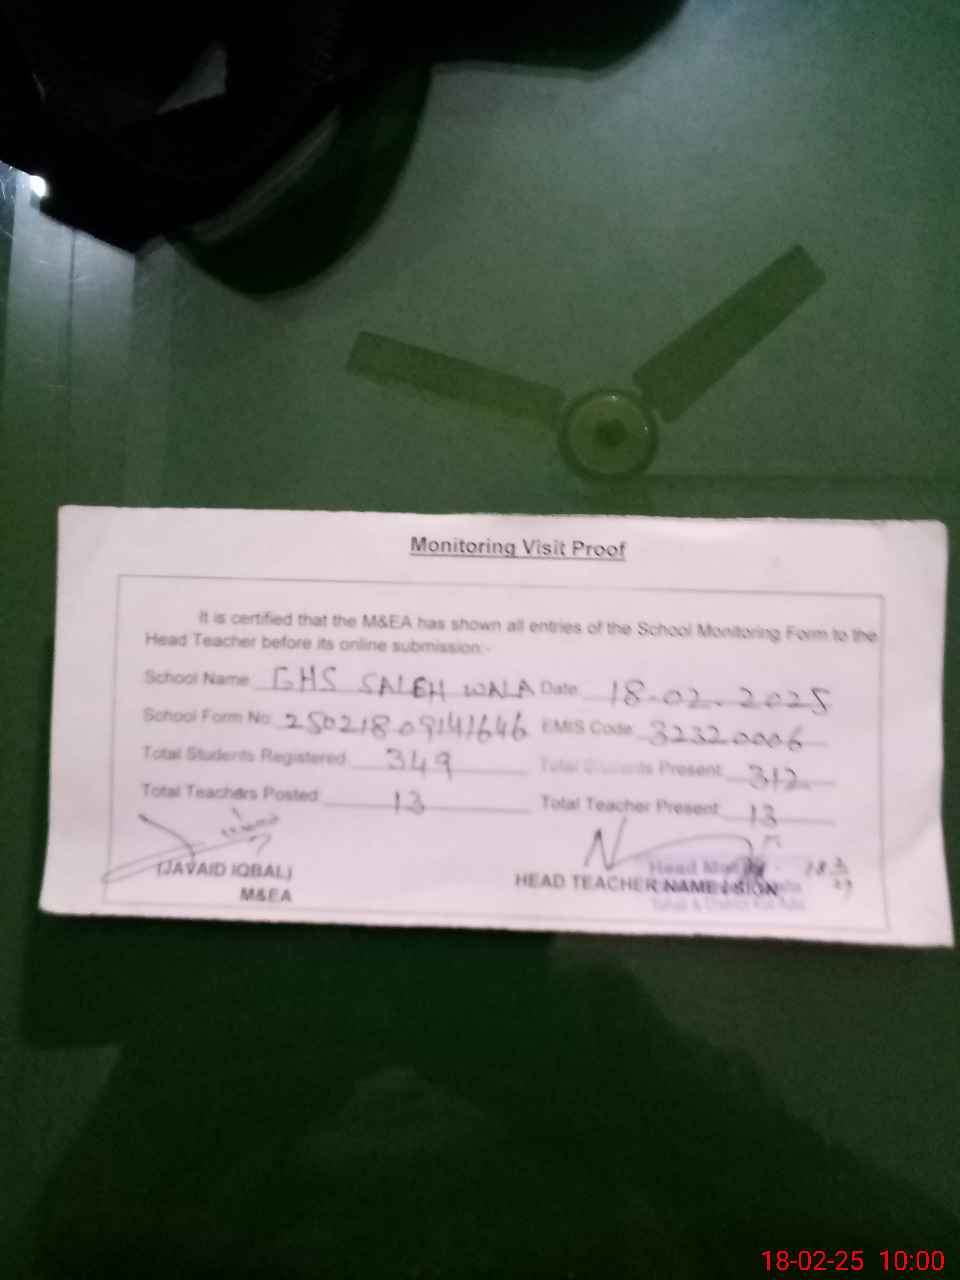 Monitoring Visit Proof
It is certified that the M&EA has shown all entries of the School Monitoring Form to the
Head Teacher before its online submission:-
School Name GHS SALEH WALA Date 18-02-2025
School Form No: 25021809141646 EMIS Code 32320006
Total Students Registered 349 Total Students Present: 312
Total Teachers Posted: 13 Total Teacher Present: 13
(JAVAID IQBAL)
M&EA
Head
HEAD TEACHER NAME & SIGN
18-02-25 10:00